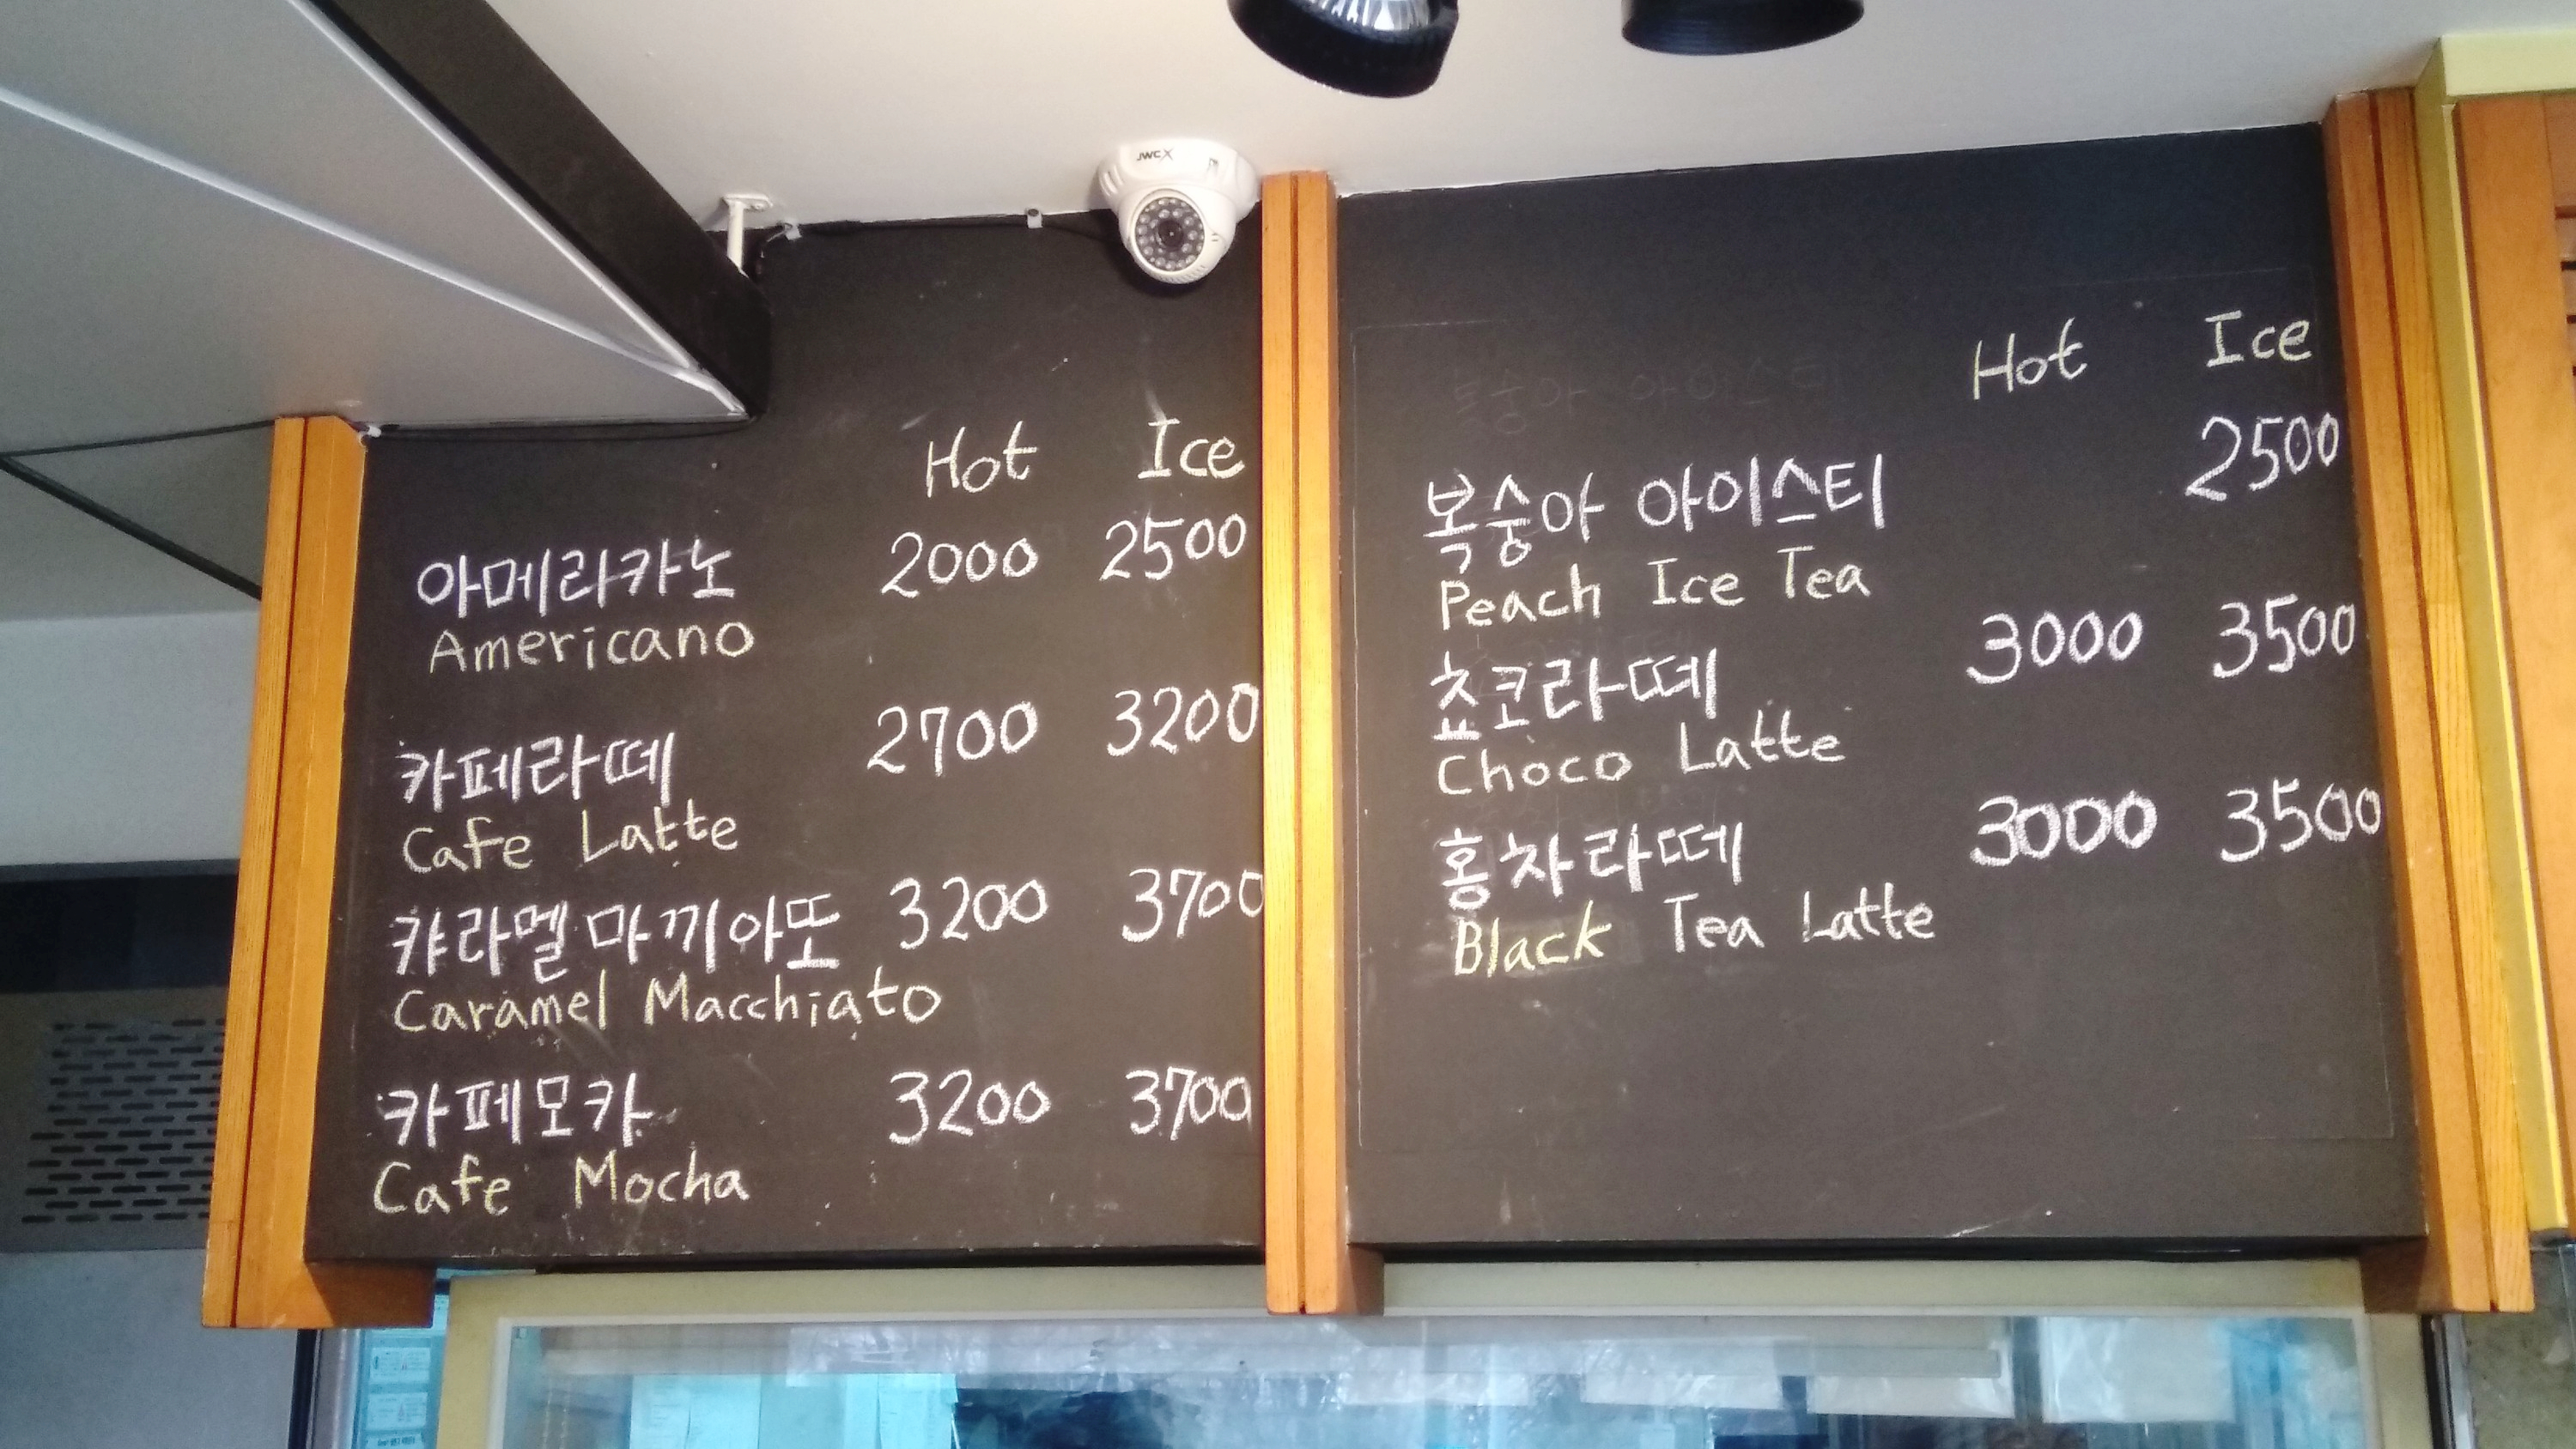 JWCX
Hot Ice
아메라카노 2000 2500
Americano
카페라떼 2700 3200
Cafe Latte
캬라멜마끼아또 3200 3700
Caramel Macchiato
카페모카 3200 3700
Cafe Mocha
Hot Ice
복숭아 아이스티 2500
Peach Ice Tea
쵸코라떼 3000 3500
Choco Latte
홍차라떼 3000 3500
Black Tea Latte